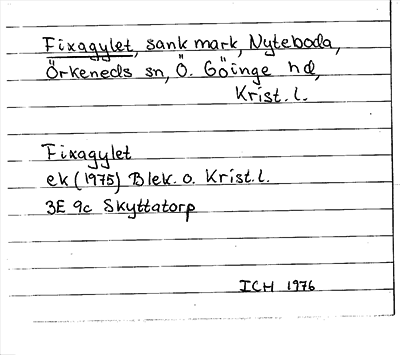 Fixagylet, sank mark, Nyteboda,
Örkeneds sn, Ö. Göinge hd,
Krist. l.
Fixagylet
ek (1975) Blek. o. Krist. l.
3E 9c Skyttatorp
ICH 1976